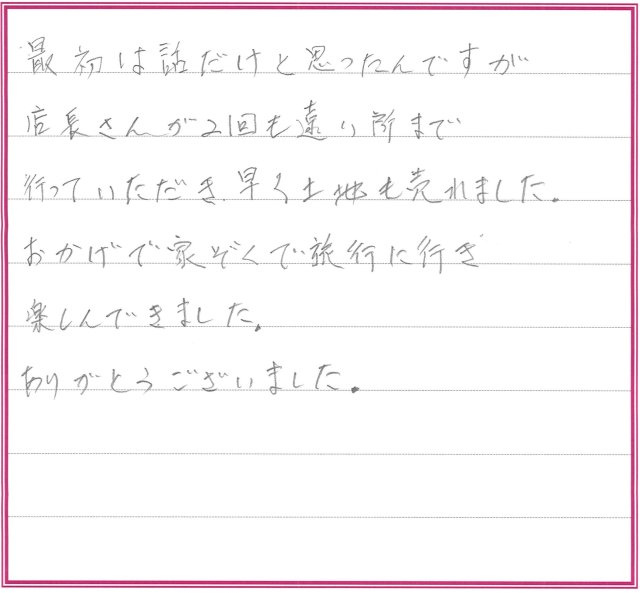 最初は話だけと思ったんですが
店長さんが2回も遠い所まで
行っていただき、早く土地も売れました。
おかげで家ぞくで旅行に行き
楽しんできました。
ありがとうございました。